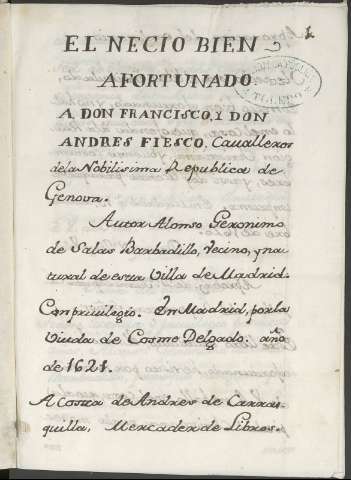 1
EL NECIO BIEN
AFORTUNADO
A DON FRANCISCO, I DON
ANDRES FIESCO, Cavalleros
de la Nobilisima Republica de
Genova.
Autor Alonso Geronimo
de Salas Barbadillo, Vecino, y na-
tural de esta Villa de Madrid.
Con privilegio. En Madrid, por la
Viuda de Cosme Delgado. año
de 1621.
A costa de Andres de Carras-
quilla, Mercader de Libros.